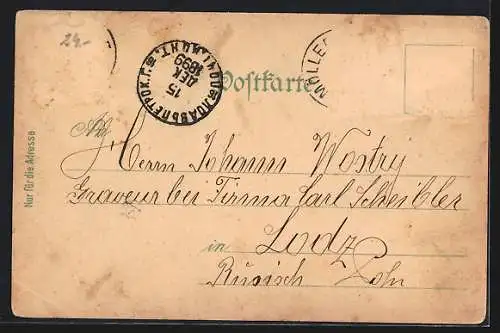 24.-
Postkarte
15
ДЕК
1899
ЛОДЗЬ ПЕТРОК. Г.
An
Herrn Johann Wostry
Graveur bei Firma Carl Scheibler
in Lodz
Rusisch Pohn
Nur für die Adresse